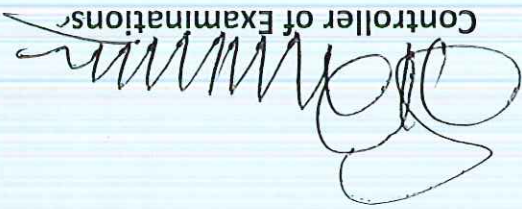 Controller of Examinations